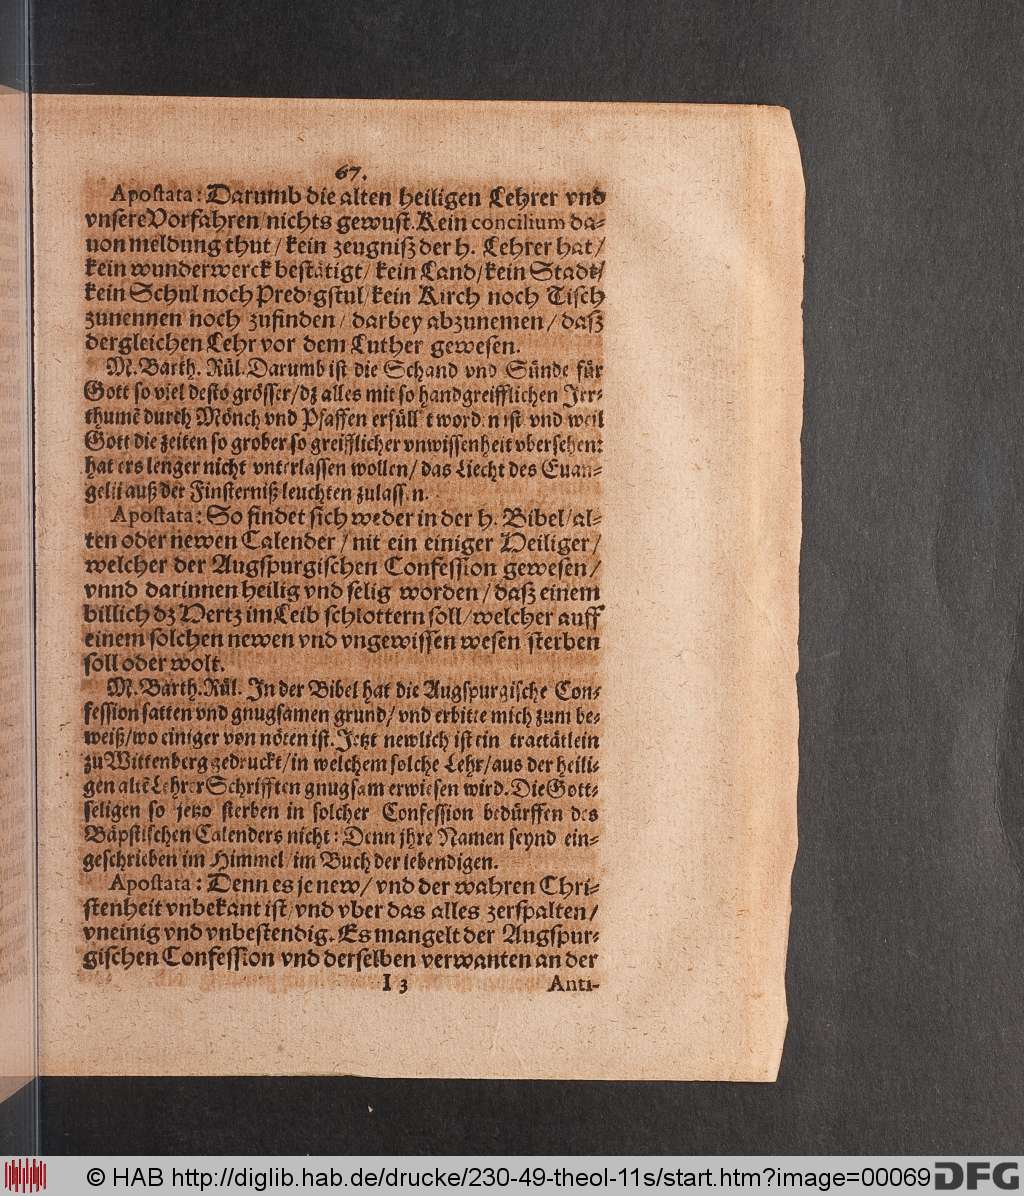 67.
Apostata: Darumb die alten heiligen Lehrer vnd
vnsere Vorfahren/nichts gewust. Kein concilium da-
uon meldung thut/kein zeugniß der h. Lehrer hat/
kein wunderwerck bestätigt/kein Land/kein Stadt/
kein Schul noch Predigstul/kein Kirch noch Tisch
zunennen noch zufinden/darbey abzunemen/daß
dergleichen Lehr vor dem Luther gewesen.
M. Barth. Rül. Darumb ist die Schand vnd Sünde für
Gott so viel desto grösser/dz alles mit so handgreifflichen Irr-
thumē durch Mönch vnd Pfaffen erfüllt worden ist vnd weil
Gott die zeiten so grober so greifflicher vnwissenheit vbersehen:
hat ers lenger nicht vnterlassen wollen/das Liecht des Euan-
gelij auß der Finsterniß leuchten zulassen.
Apostata: So findet sich weder in der h. Bibel/al-
ten oder newen Calender/nit ein einiger Heiliger/
welcher der Augspurgischen Confession gewesen/
vnnd darinnen heilig vnd selig worden/daß einem
billich dz Hertz im Leib schlottern soll/welcher auff
einem solchen newen vnd vngewissen wesen sterben
soll oder wolt.
M. Barth. Rül. In der Bibel hat die Augspurgische Con-
fession satten vnd gnugsamen grund/vnd erbitte mich zum be-
weiß/wo einiger von nöten ist. Jetzt newlich ist ein tractätlein
zu Wittenberg gedruckt/in welchem solche Lehr/aus der heili-
gen altē Lehrer Schrifften gnugsam erwiesen wird. Die Gott-
seligen so jetzo sterben in solcher Confession bedürffen des
Bäpstischen Calenders nicht: Denn jhre Namen seynd ein-
geschrieben im Himmel/im Buch der lebendigen.
Apostata: Denn es je new/vnd der wahren Chri-
stenheit vnbekant ist/vnd vber das alles zerspalten/
vneinig vnd vnbestendig. Es mangelt der Augspur-
gischen Confession vnd derselben verwanten an der
I 3 Anti-
© HAB http://diglib.hab.de/drucke/230-49-theol-11s/start.htm?image=00069 DFG